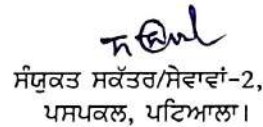 ਸੰਯੁਕਤ ਸਕੱਤਰ/ਸੇਵਾਵਾਂ-2,
ਪਸਪਕਲ, ਪਟਿਆਲਾ।